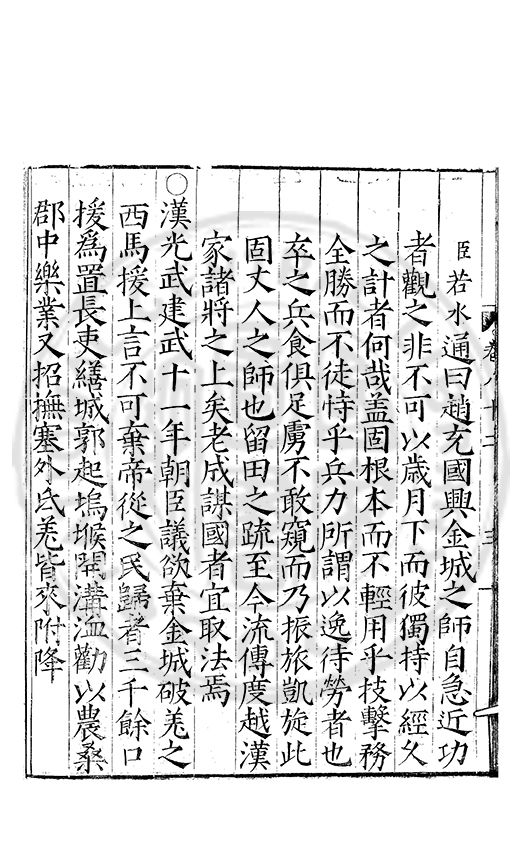 臣若水通曰趙充國興金城之師自急近功
者觀之非不可以歲月下而彼獨持以經久
之計者何哉盖固根本而不輕用乎技擊務
全勝而不徒恃乎兵力所謂以逸待勞者也
卒之兵食俱足虜不敢窺而乃振旅凱旋此
固丈人之師也留田之疏至今流傳度越漢
家諸將之上矣老成謀國者宜取法焉
○漢光武建武十一年朝臣議欲棄金城破羗之
西馬援上言不可棄帝從之民歸者三千餘口
援爲置長吏繕城郭起塢堠開溝洫勸以農桑
郡中樂業又招撫塞外氐羗皆來附降
卷八十二
三